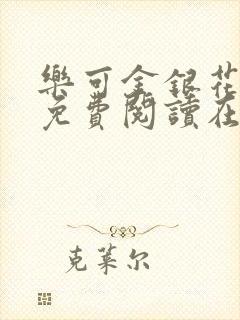 樂可金銀花
免費閱讀在
克萊尔